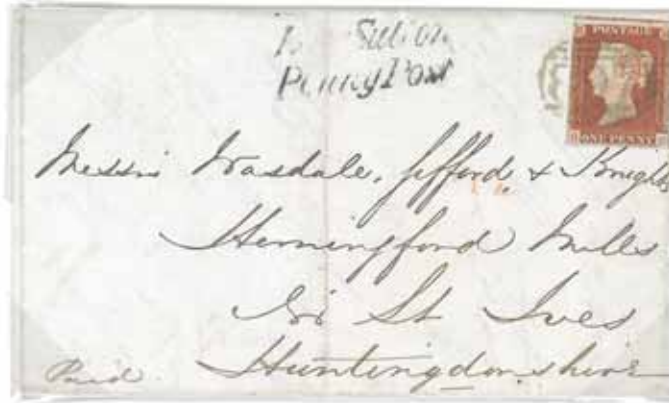 Penny Post
POSTAGE
ONE PENNY
Messrs Wasdale, Gifford, & Knights
Hemingford Mills
St Ives
Huntingdonshire
Paid